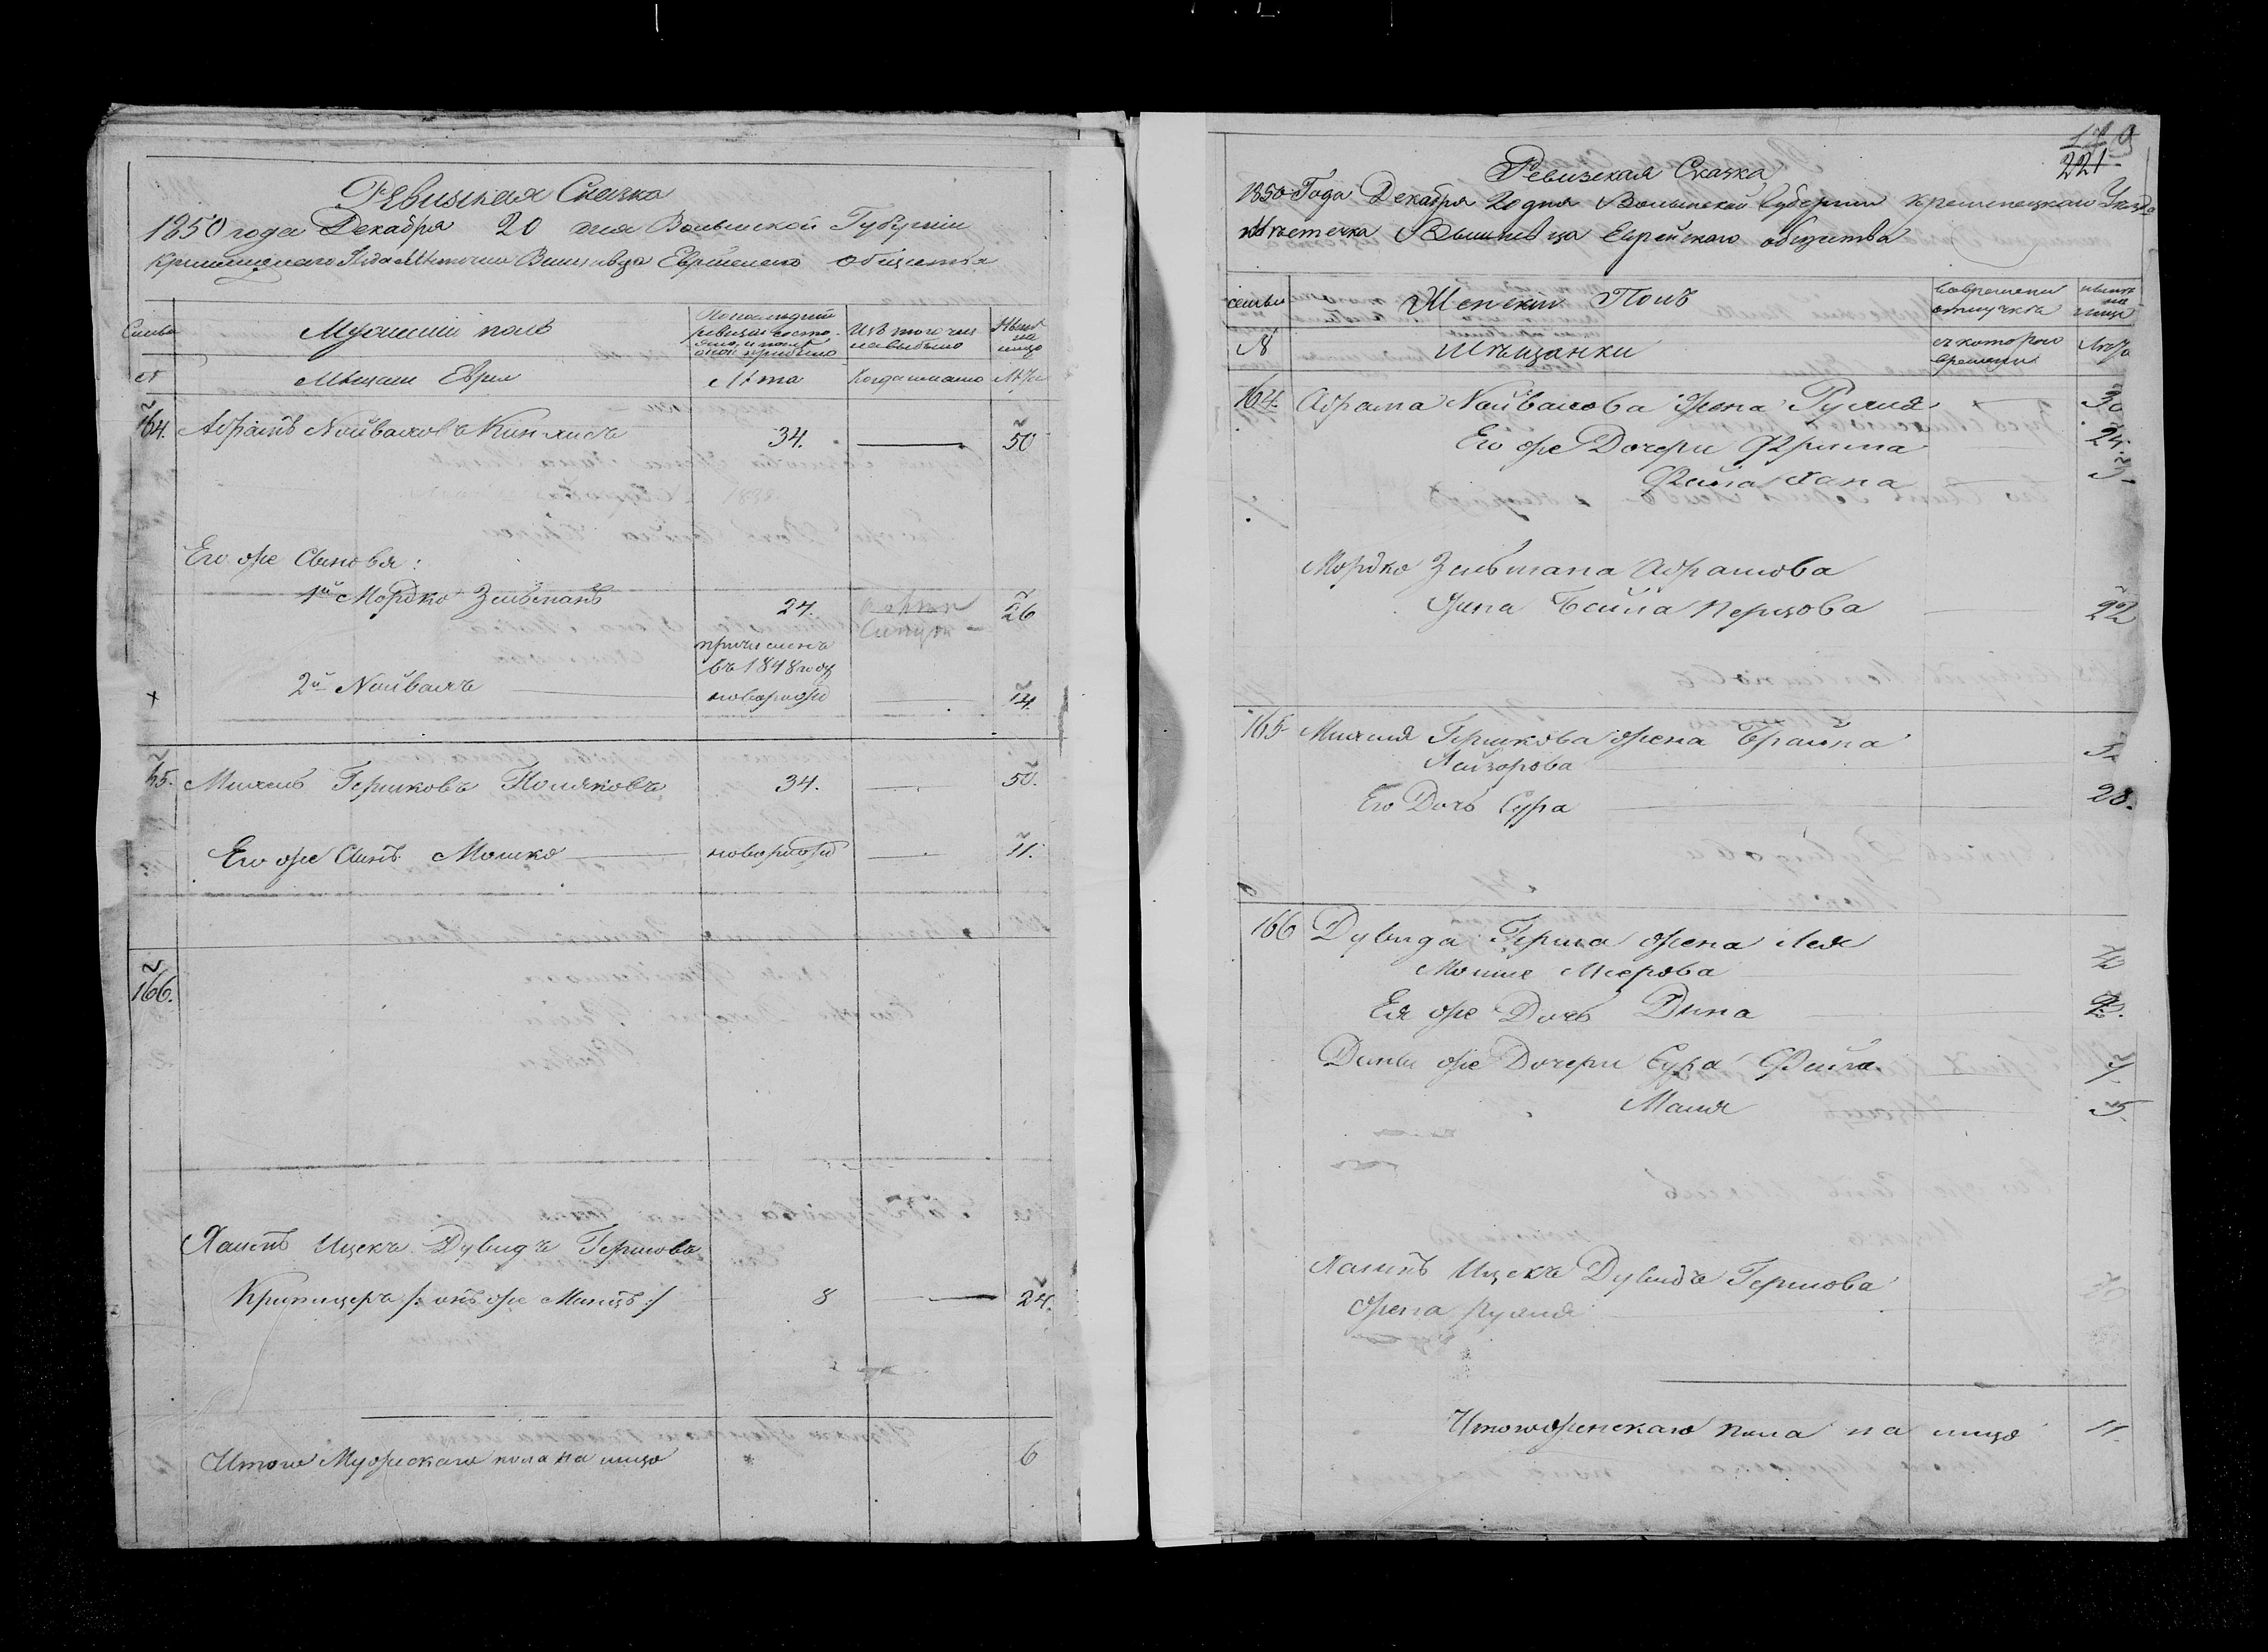 Ревизская Сказка
1850 года Декабря 20 дня Волынской Губернии
Кременецкаго Уезда Местечка Вишневца Еврейского общества
Семьи
Мужеский полъ
По последней ревизии состояло и после оной прибыло
Изъ того числа выбыло
Ныне на лицо
№
Мещане Евреи
Лета
Когда именно
Лета
164. Абрамъ Нойваховъ 34. 50
Его же Сыновья:
1й Мордко Зельманъ 24. 26
причисленъ
въ 1848 году
2й Нойвахъ новорожд 14.
165. Михель Гершковъ Поляковъ 34. 50.
Его же Сынъ Мошко новорожд 11.
166.
Хаимъ Ицекъ Дувидъ Гершовъ
/: онъ же :/ 8 24.
Итого Мужескаго пола на лицо 6
179
221
Ревизская Сказка
1850 Года Декабря 20 дня Волынской Губернии Кременецкаго Уезда
Местечка Вишневца Еврейскаго общества
семьи
Женский Полъ
Во временной отлучке
ныне на лицо
№
Мещанки
съ котораго времени
Лета
164. Абрама Нойвахова Жена Рухля 30
Его же Дочери Фрима 24.
Файга Хана
Мордко Зельмана Абрамова
Жена Бейла Перцова 22
165 Михеля Гершкова жена Брайна
Лейзорова
Его Дочь Сура 20.
166 Дувида Герша жена Лея
Мошке Меерова
Ея же Дочь Дина
Дины же Дочери Сура Файга 7
Маля 5.
Хаимъ Ицекъ Дувидъ Гершова
Жена Рухля
Итого женскаго пола на лицо 11.